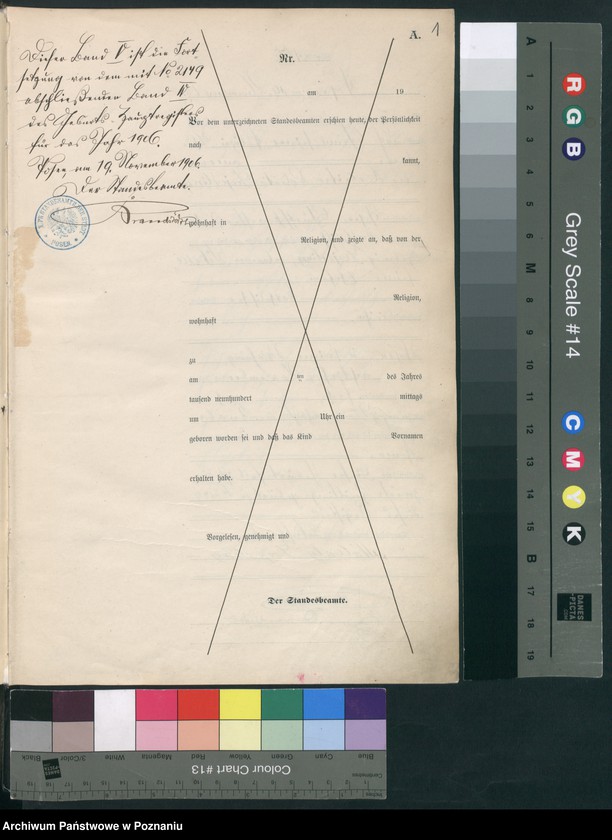 A. 1
Dieser Band V ist die Fort-
setzung von dem mit No 2149
abschließenden Band IV
des Geburts-Hauptregisters
für das Jahr 1906.
Posen am 19. November 1906.
Der Standesbeamte.
POSEN
Nr.
am 19
Vor dem unterzeichneten Standesbeamten erschien heute, der Persönlichkeit
nach
kannt,
wohnhaft in
Religion, und zeigte an, daß von der
Religion,
wohnhaft
zu
am ten des Jahres
tausend neunhundert mittags
um Uhr ein
geboren worden sei und daß das Kind Vornamen
erhalten habe.
Vorgelesen, genehmigt und
Der Standesbeamte.
A 1 2 3 4 5 6 M 8 9 10 11 12 13 14 15 B 17 18 19
R G B
Grey Scale #14
C M Y K
DANES
PICTA
.COM
Blue Cyan Green Yellow Red Magenta White 3/Color Black
Colour Chart #13
Centimetres
Inches
Archiwum Państwowe w Poznaniu